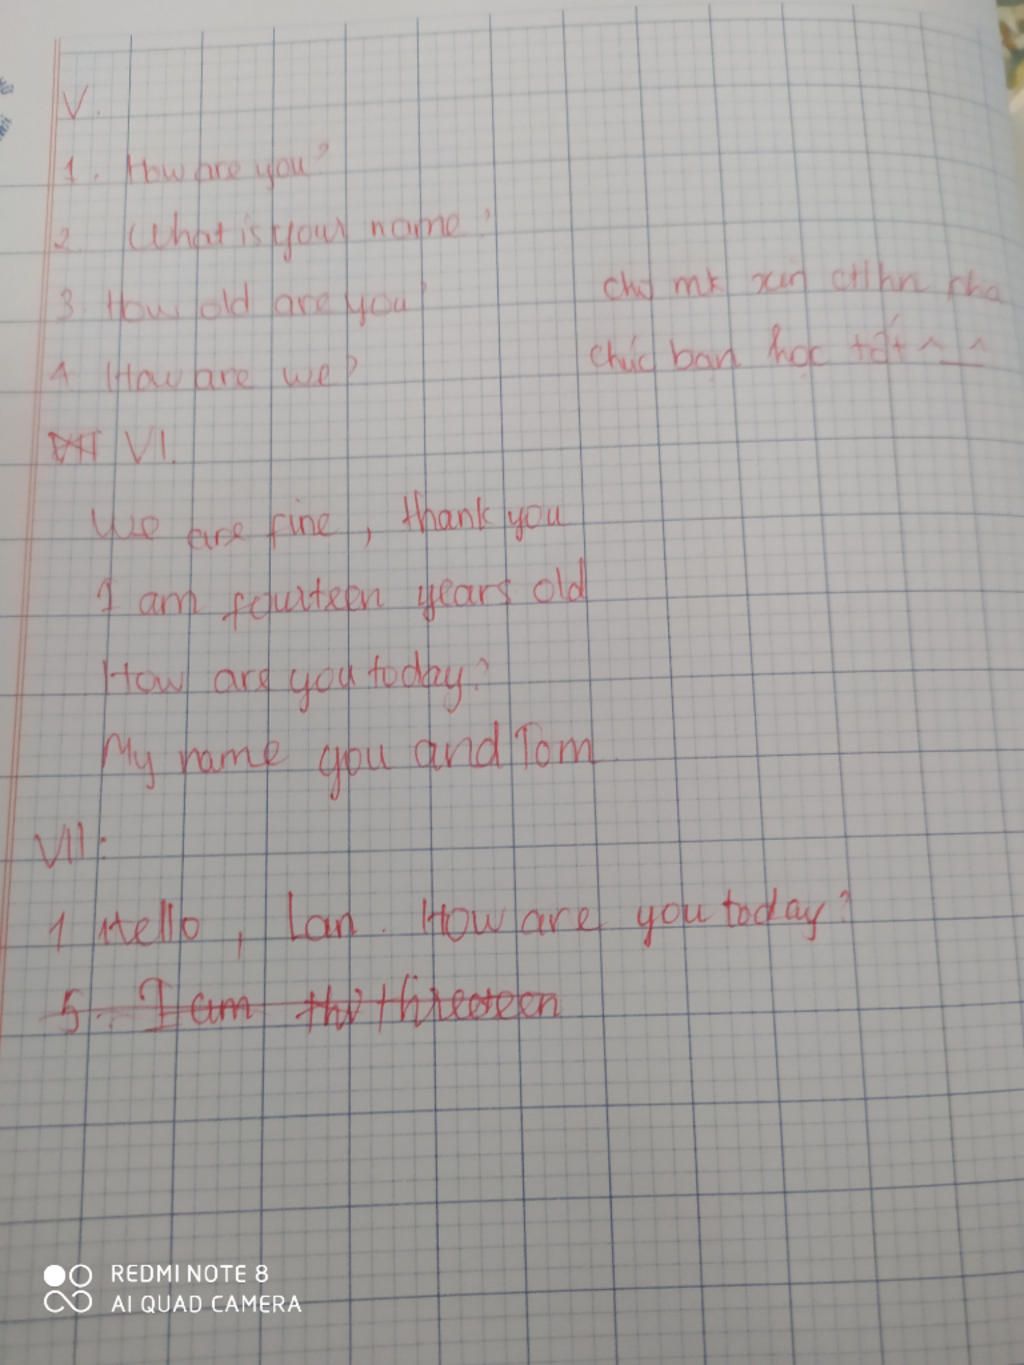 V.
1. How are you?
2 What is your name?
3 How old are you?
cho mk xin ctlhn nha
4 How are we?
chúc bạn học tốt ^_^
VI.
We are fine, thank you
I am fourteen years old
How are you today?
My name you and Tom
VII:
1 Hello, Lan. How are you today?
5. I am thi thireeteen